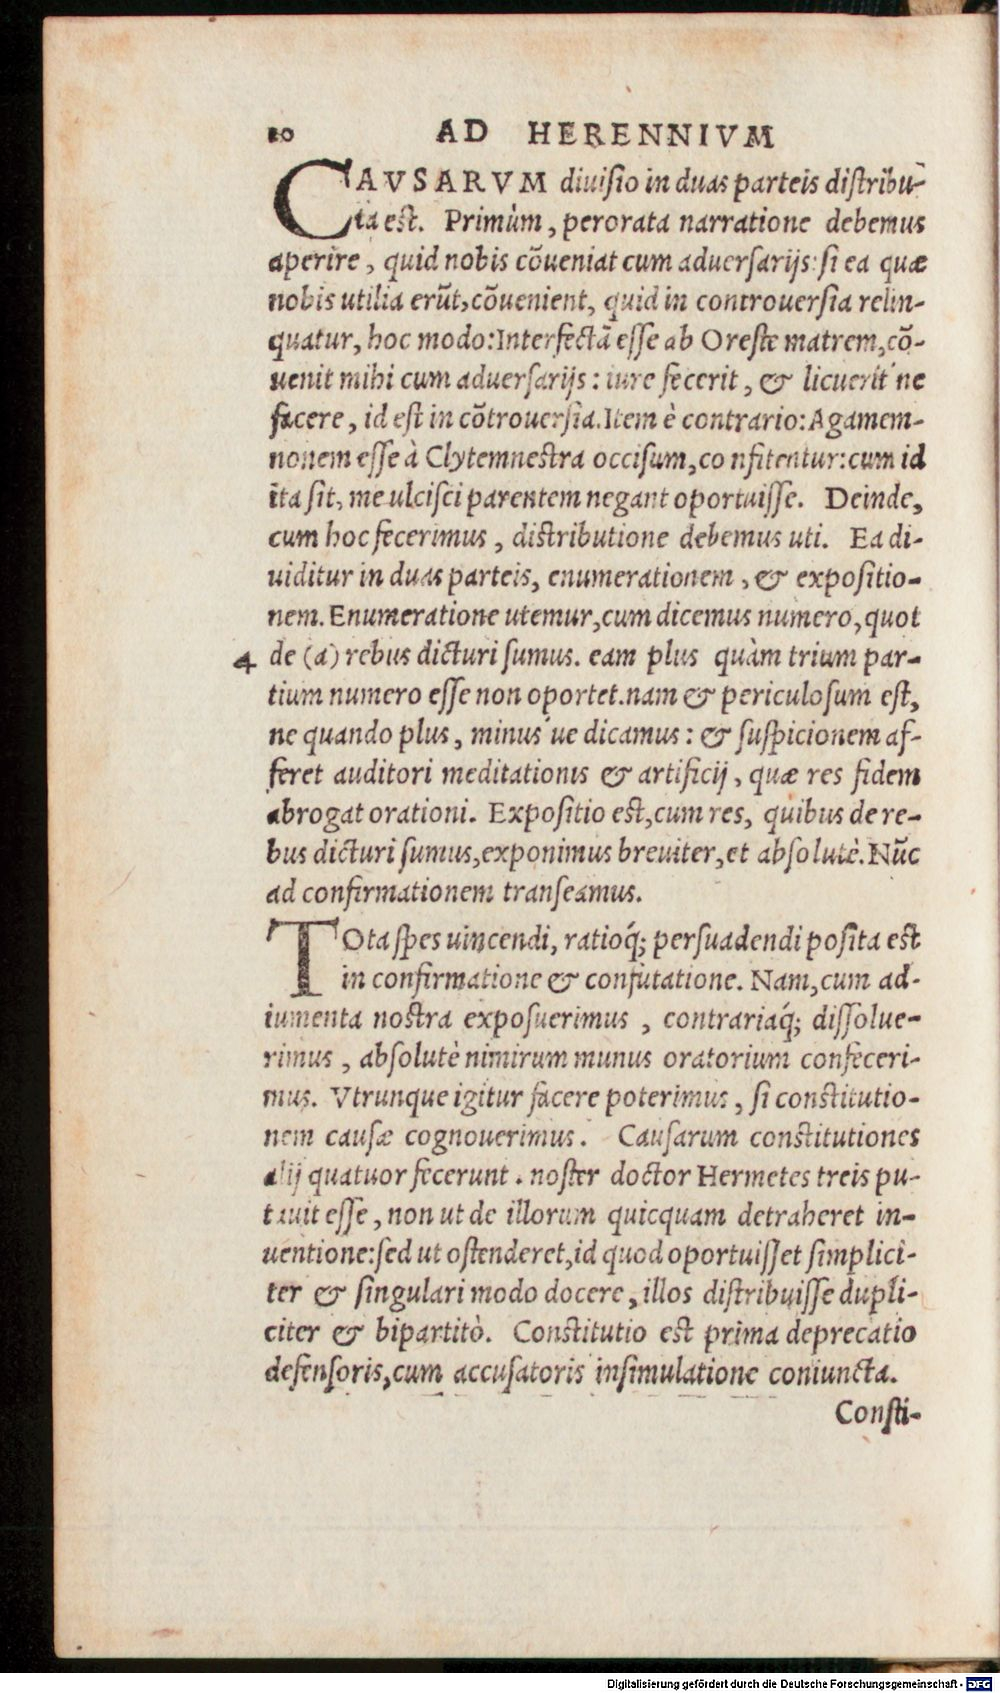 20 AD HERENNIVM
CAVSARVM diuisio in duas parteis distribu-
ta est. Primùm, perorata narratione debemus
aperire, quid nobis cõueniat cum aduersarijs: si ea quæ
nobis utilia erũt, cõuenient, quid in controuersia relin-
quatur, hoc modo: Interfectã esse ab Oreste matrem, cõ-
uenit mihi cum aduersarijs: iure fecerit, & licuerit'ne
facere, id est in cõtrouersia. Item è contrario: Agamem-
nonem esse à Clytemnestra occisum, co nfitentur: cum id
ita sit, me ulcisci parentem negant oportuisse. Deinde,
cum hoc fecerimus, distributione debemus uti. Ea di-
uiditur in duas parteis, enumerationem, & expositio-
nem. Enumeratione utemur, cum dicemus numero, quot
4 de (a) rebus dicturi sumus. eam plus quàm trium par-
tium numero esse non oportet. nam & periculosum est,
ne quando plus, minus'ue dicamus: & suspicionem af-
feret auditori meditationis & artificij, quæ res fidem
abrogat orationi. Expositio est, cum res, quibus de re-
bus dicturi sumus, exponimus breuiter, et absolutè. Nũc
ad confirmationem transeamus.
TOta spes uincendi, ratioq́; persuadendi posita est
in confirmatione & confutatione. Nam, cum ad-
iumenta nostra exposuerimus, contrariaq́; dissolue-
rimus, absolutè nimirum munus oratorium confeceri-
mus. Vtrunque igitur facere poterimus, si constitutio-
nem causæ cognouerimus. Causarum constitutiones
alij quatuor fecerunt. noster doctor Hermetes treis pu-
tauit esse, non ut de illorum quicquam detraheret in-
uentione: sed ut ostenderet, id quod oportuisset simplici-
ter & singulari modo docere, illos distribuisse dupli-
citer & bipartitò. Constitutio est prima deprecatio
defensoris, cum accusatoris insimulatione coniuncta.
Consti-
Digitalisierung gefördert durch die Deutsche Forschungsgemeinschaft - DFG